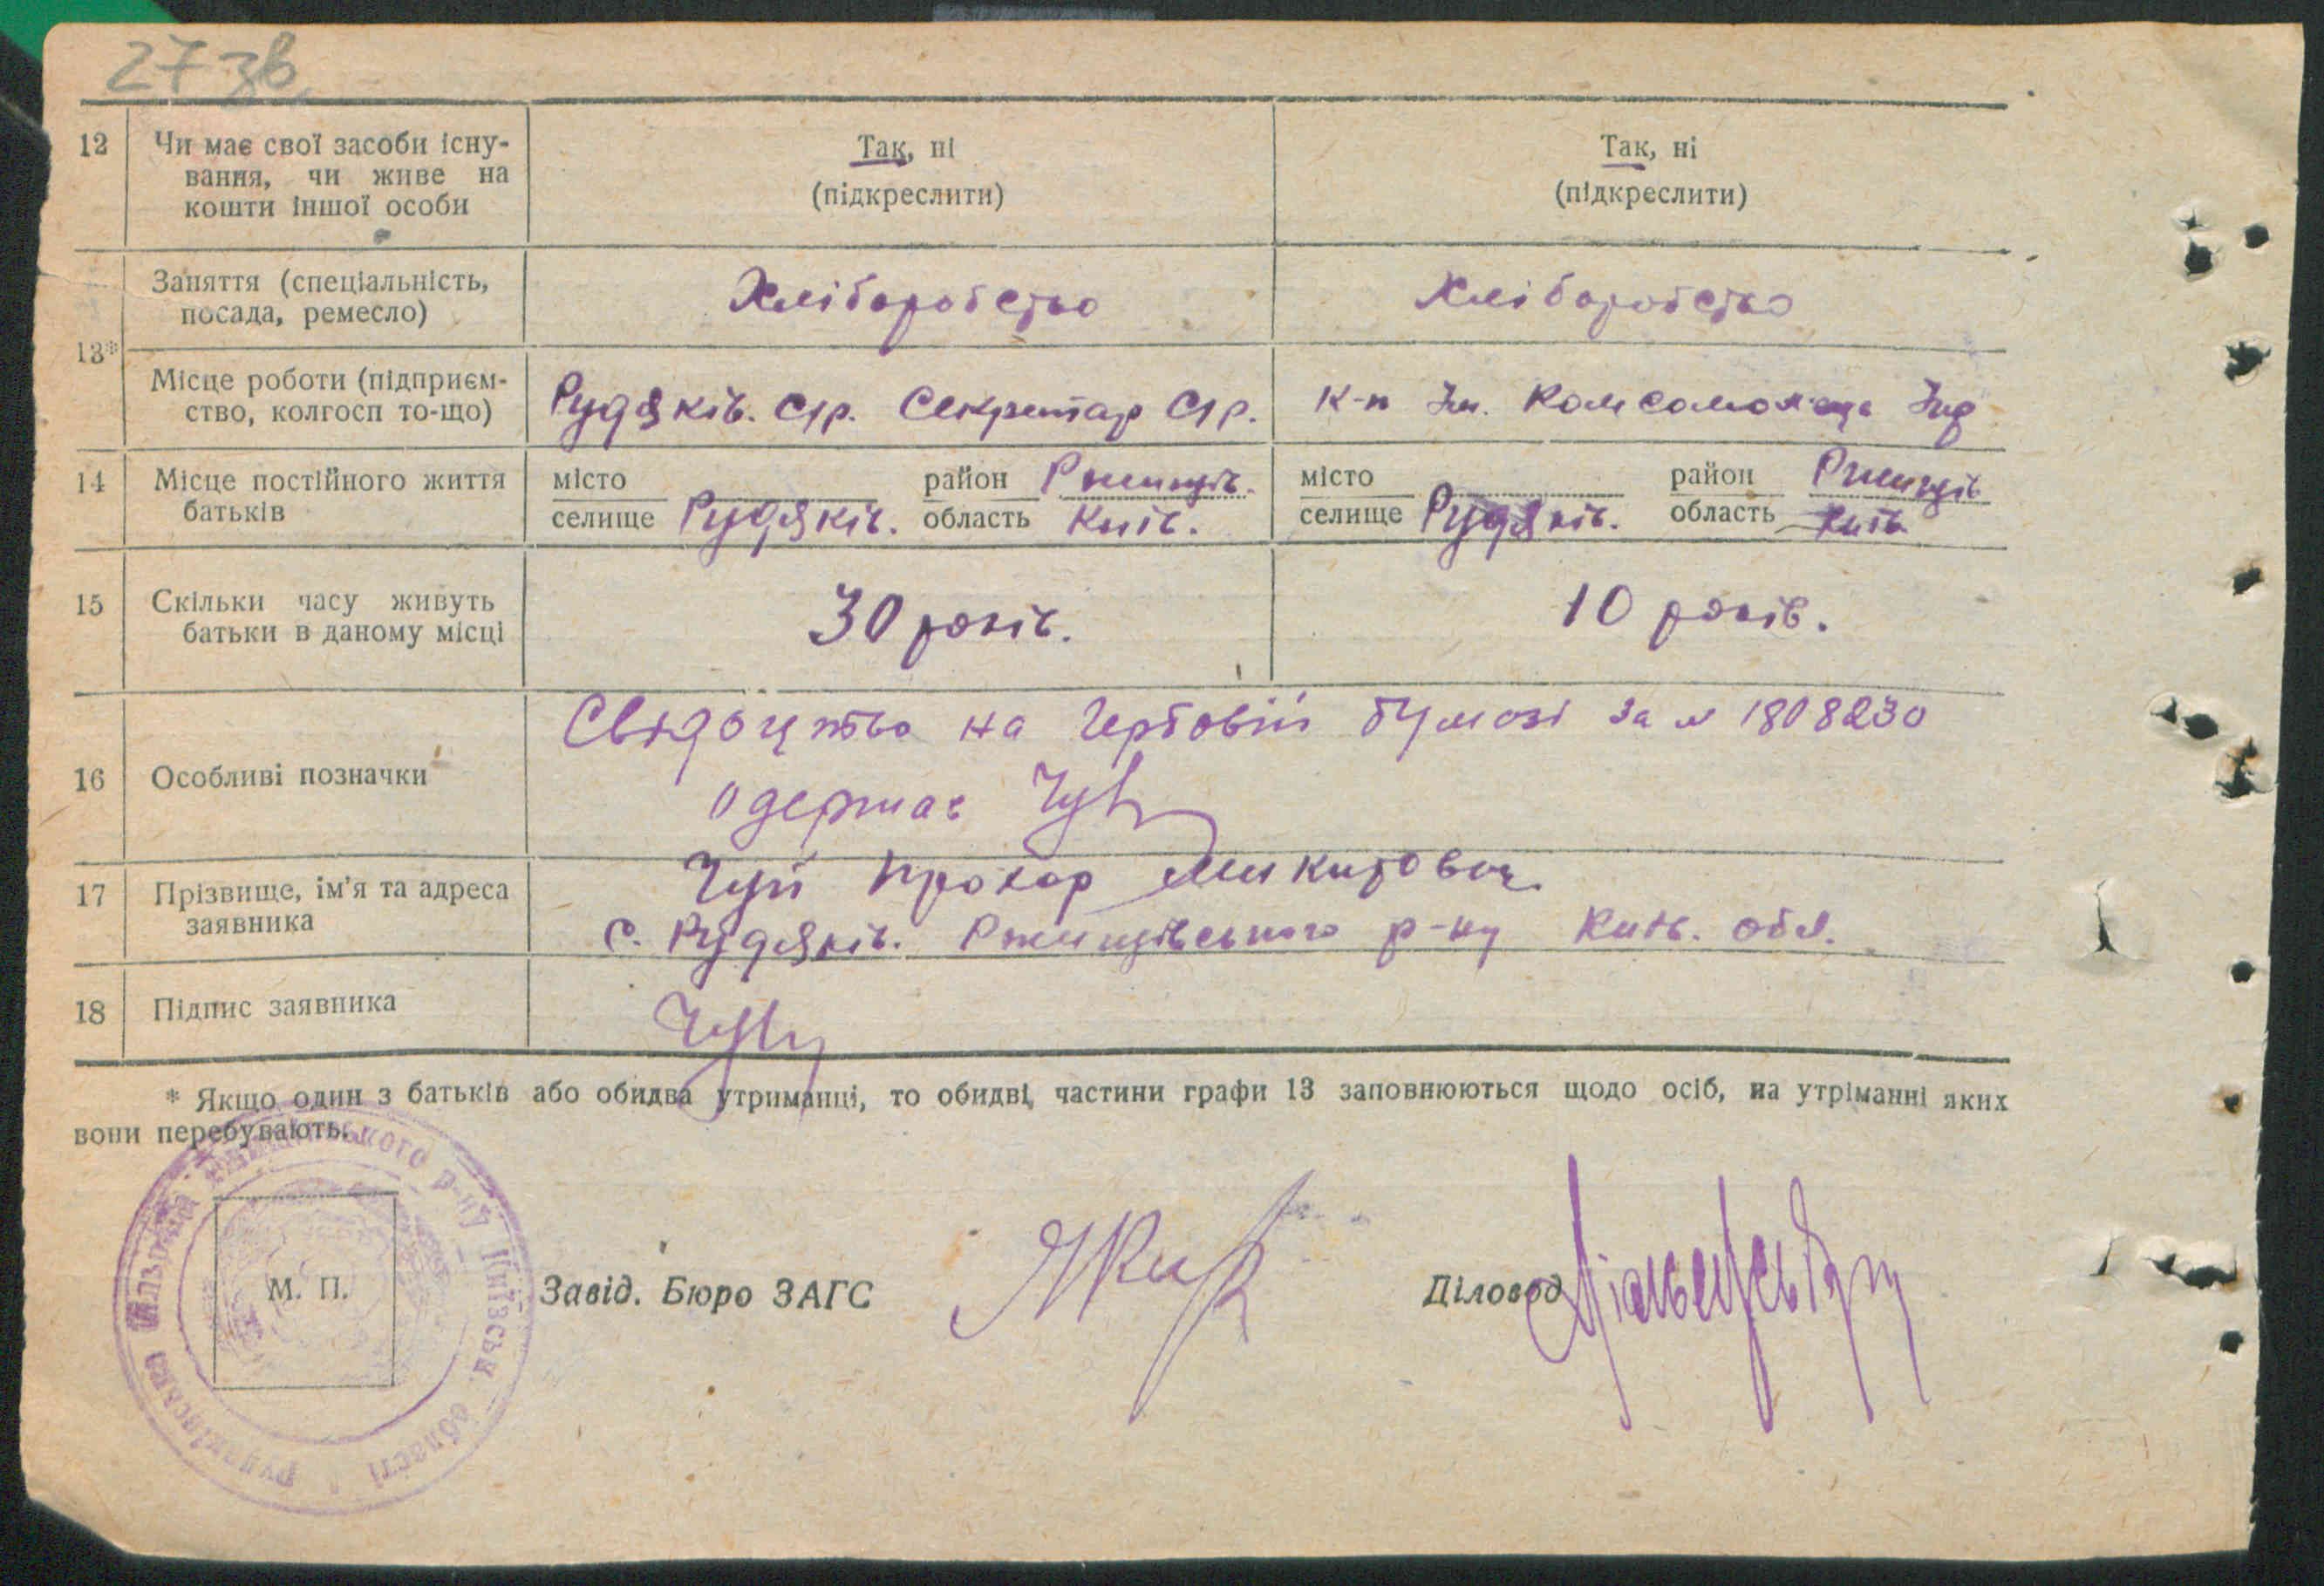 27 зв
12 Чи має свої засоби існу- Так, ні Так, ні
вання, чи живе на (підкреслити) (підкреслити)
кошти іншої особи
Заняття (спеціальність, Хліборобство Хліборобство
посада, ремесло)
13*
Місце роботи (підприєм- Рудяків. С/р. Секретар С/р. К-п Ім. Комсомольця
ство, колгосп то-що)
14 Місце постійного життя місто район Ржищів. місто район Ржищів
батьків селище Рудяків. область Київ. селище Рудяків. область Київ
15 Скільки часу живуть 30 років. 10 років.
батьки в даному місці
Свідоцтво на гербовій бумозі за № 1808230
16 Особливі позначки
одержав
17 Прізвище, ім'я та адреса Чуй Прохор Микитович
заявника с. Рудяків. Ржищівського р-ну Київ. обл.
18 Підпис заявника
* Якщо один з батьків або обидва утриманці, то обидві частини графи 13 заповнюються щодо осіб, на утріманні яких
вони перебувають.
М. П. Завід. Бюро ЗАГС Діловод
р-ну Київськ. області